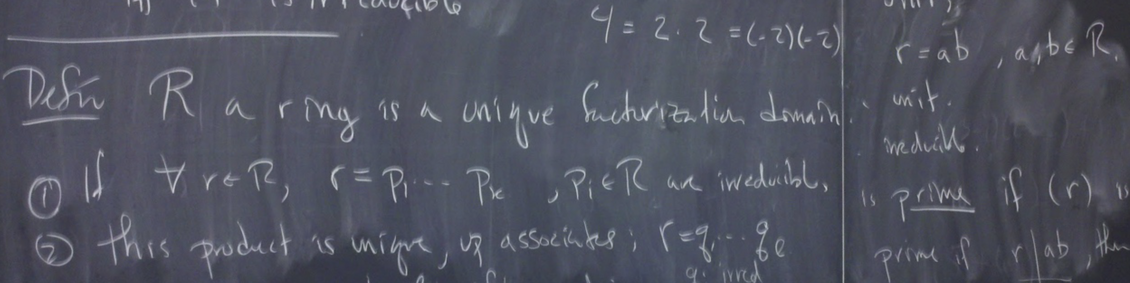 is irreducible
4 = 2 · 2 = (-2)(-2)
Defn R a ring is a unique factorization domain.
① If ∀ r ∈ R, r = p₁ ... pₖ , pᵢ ∈ R are irreducible,
② this product is unique, up associates; r = q₁ ... qₑ
irred
r = ab , a, b ∈ R,
unit.
irreducible.
is prime if (r) is
prime if r | ab, then